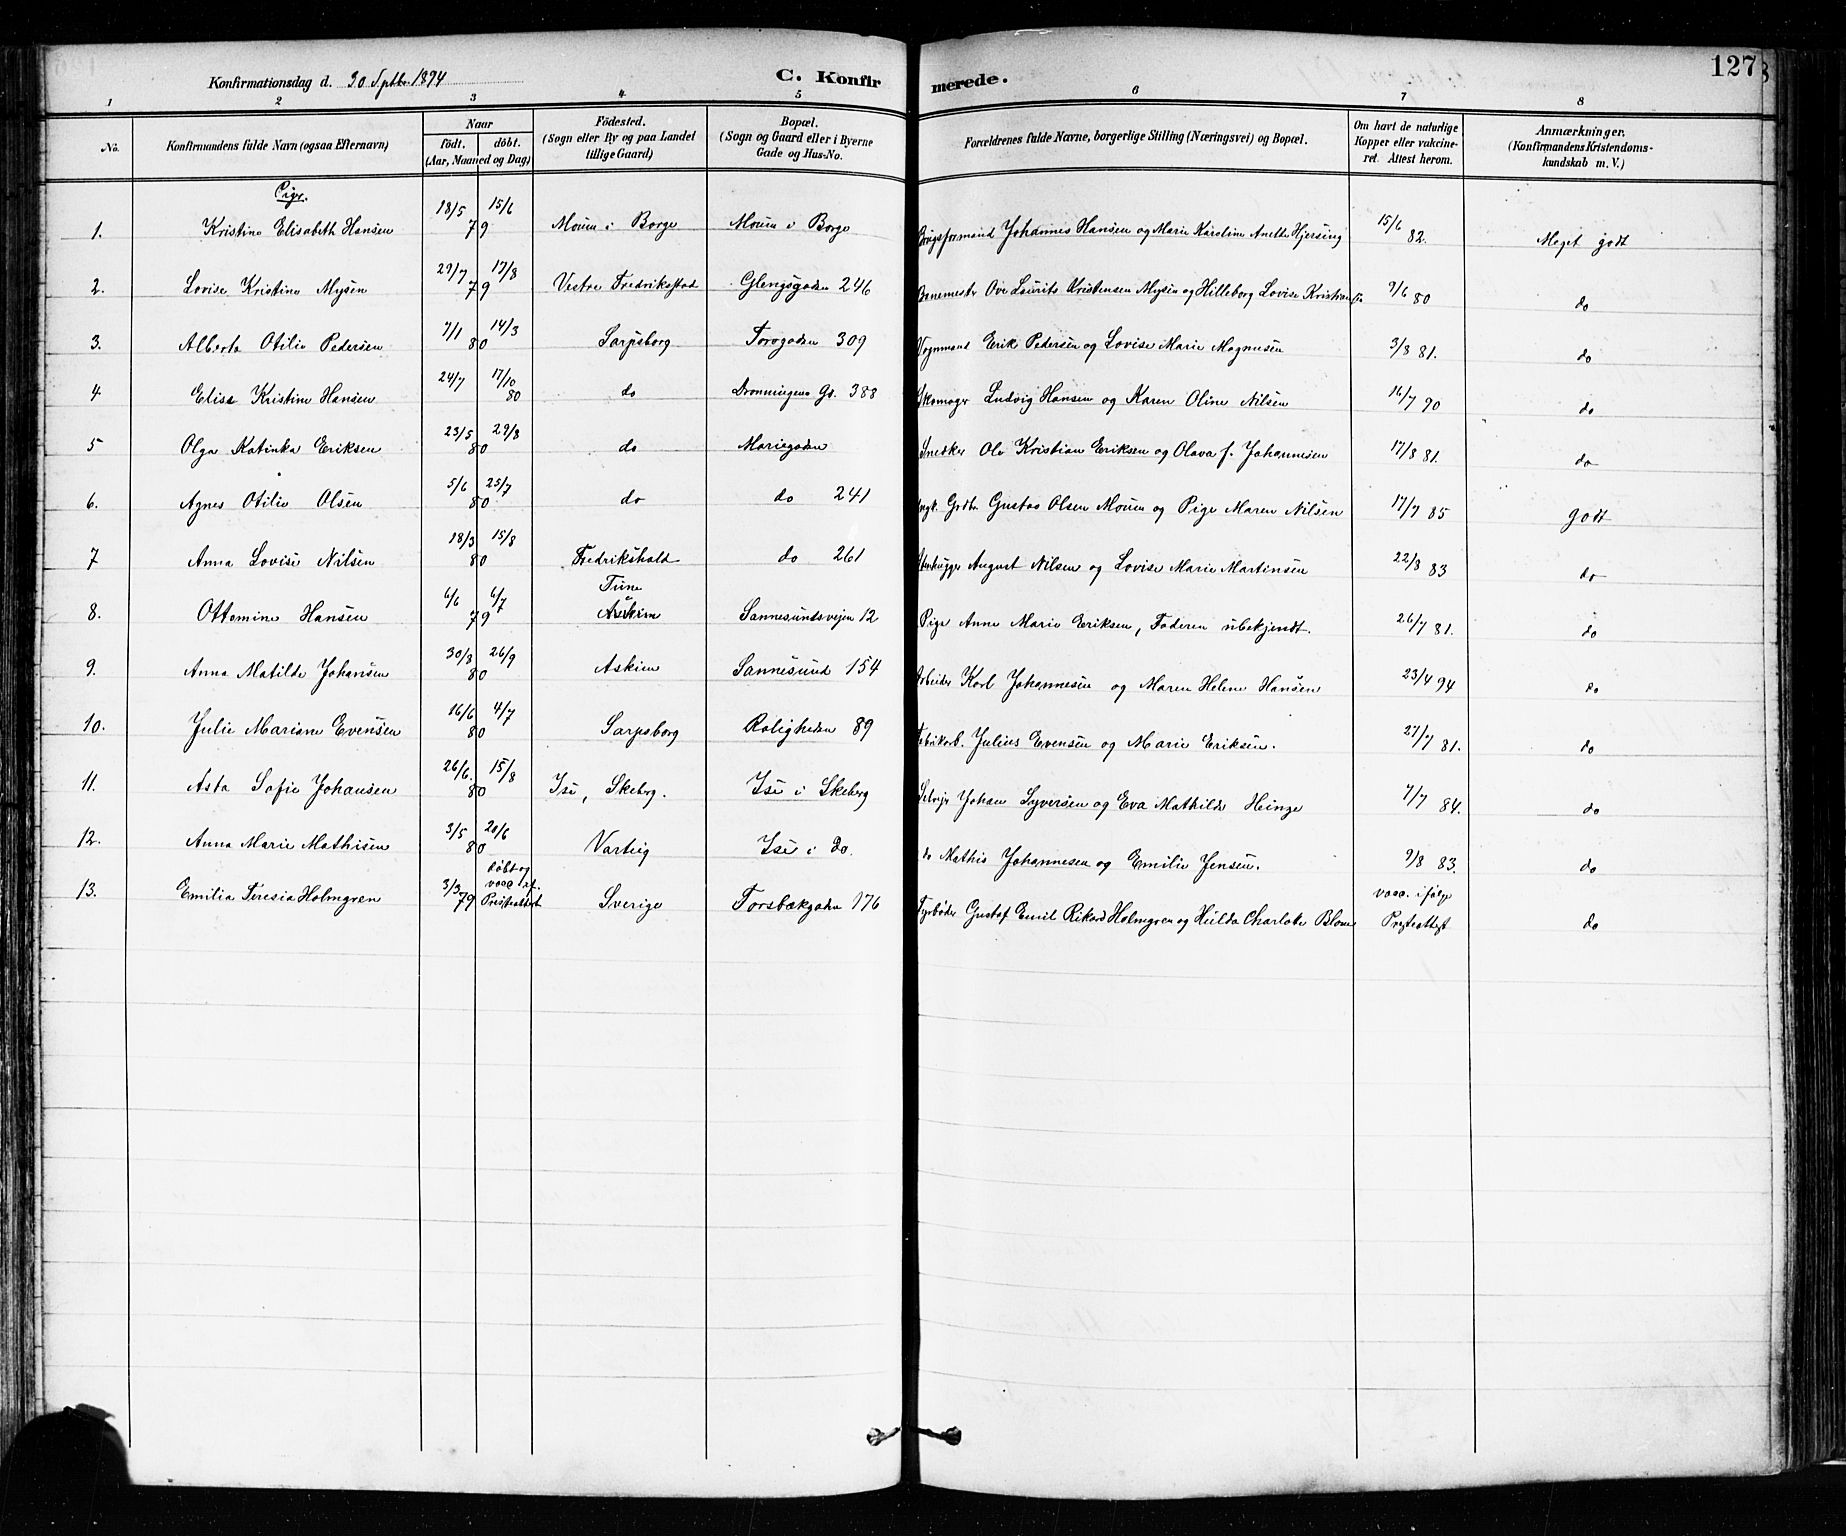 127
Konfirmationsdag d. 30 Septbr. 1894 C. Konfirmerede.
1 2 3 4 5 6 7 8
No.
Konfirmandens fulde Navn (ogsaa Efternavn)
Naar
født. døbt.
(Aar, Maaned og Dag)
Fødested.
(Sogn eller By og paa Landet
tillige Gaard)
Bopæl.
(Sogn og Gaard eller i Byerne
Gade og Hus-No.
Forældrenes fulde Navne, borgerlige Stilling (Næringsvei) og Bopæl.
Om havt de naturlige
Kopper eller vakcine-
ret. Attest herom.
Anmærkninger.
(Konfirmandens Kristendoms-
kundskab m. V.)
Piger.
1. Kristine Elisabeth Hansen 18/5 15/6 79 Moum i Borge Moum i Borge Johannes Hansen og Marie Karoline Anette Hjersing 15/6 82. Meget godt
2. Lovise Kristine Mysen 29/7 17/8 79 Vestre Fredriksstad Glengsgaden 246 Banemester Ove Laurits Kristensen Mysen og Hilleborg Lovise 9/6 80 do
3. Alberta Otilie Pedersen 7/1 14/3 80 Sarpsborg Torvgaden 309 Vognmand Erik Pedersen og Lovise Marie Magnusen 3/8 81. do
4. Elise Kristine Hansen 24/7 17/10 80 do Dronningens Gd. 388 Skomager Ludvig Hansen og Karen Oline Nilsen 16/7 90 do
5 Olga Katinka Eriksen 23/5 29/8 80 do Mariegaden Snedker Ole Kristian Eriksen og Olava f. Johannesen 17/8 81. do
6. Agnes Otilie Olsen 5/6 25/7 80 do do 241 Gustav Olsen Moum og Pige Maren Nilsen 17/7 85 godt
7 Anna Lovise Nilsen 18/3 15/8 80 Fredrikshald do 261 Stenhugger August Nilsen og Lovise Marie Martinsen 22/8 83 do
8. Ottomine Hansen 6/6 6/7 79 Trine Askim Sannesundsvejen 12 Pige Anne Marie Eriksen, Faderen ubekjendt. 26/7 81. do
9. Anna Matilde Johansen 30/8 26/9 80 Askim Sannesund 154 Arbeider Karl Johannesen og Maren Helene Hansen 23/4 94 do
10. Julie Mariane Evensen 16/6 4/7 80 Sarpsborg Roligheden 89 Fabrikarb. Julius Evensen og Marie Eriksen. 27/7 81. do
11. Asta Sofie Johansen 26/6. 15/8 80 Ise, Skeberg. Ise i Skeberg Selveier Johan Syversen og Eva Mathilde Heinze 7/7 84. do
12. Anna Marie Mathisen 3/5 20/6 80 Varteig Ise i do. do Mathis Johannesen og Emilie Jensen. 9/8 83. do
13. Emilia Teresia Holmgren 3/3 79 døbt og vacc. i f. Presteattest Sverige Torsbækgaden 176 Fyrbøder Gustaf Emil Rikard Holmgren og Hulda Charlotte Blom vacc. ifølge Presteattest do